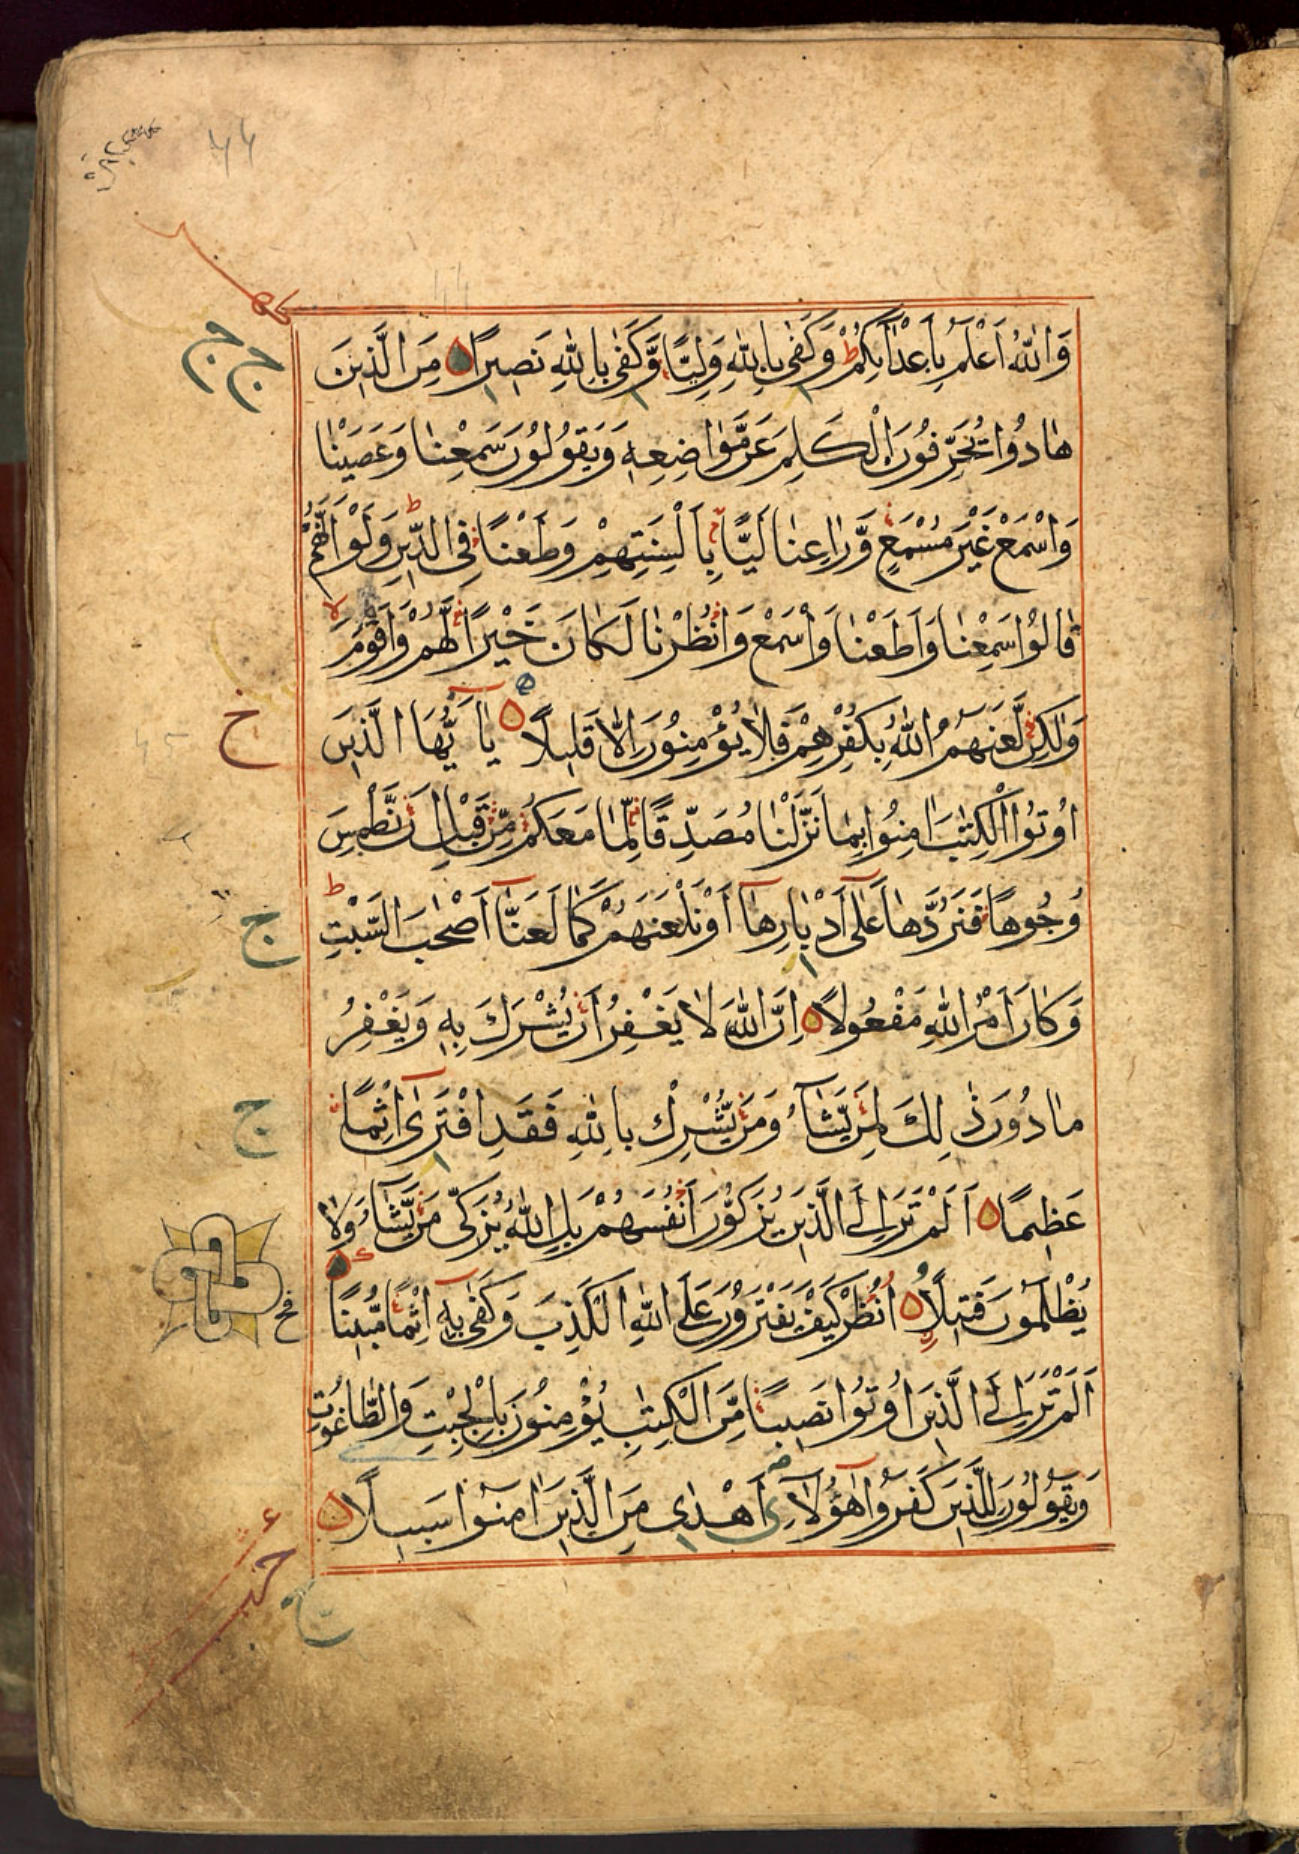 وَاللّٰهُ اَعْلَمُ بِاَعْدَآئِكُمْ ط وَكَفٰى بِاللّٰهِ وَلِيًّا وَّكَفٰى بِاللّٰهِ نَصِيْرًا مِنَ الَّذِيْنَ
هَادُوْا يُحَرِّفُوْنَ الْكَلِمَ عَنْ مَّوَاضِعِهٖ وَيَقُوْلُوْنَ سَمِعْنَا وَعَصَيْنَا
وَاسْمَعْ غَيْرَ مُسْمَعٍ وَّرَاعِنَا لَيًّا بِاَلْسِنَتِهِمْ وَطَعْنًا فِى الدِّيْنِ ط وَلَوْ اَنَّهُمْ
قَالُوْا سَمِعْنَا وَاَطَعْنَا وَاسْمَعْ وَانْظُرْنَا لَكَانَ خَيْرًا لَّهُمْ وَاَقْوَمَ لا
وَلٰكِنْ لَّعَنَهُمُ اللّٰهُ بِكُفْرِهِمْ فَلَا يُؤْمِنُوْنَ اِلَّا قَلِيْلًا يَآاَيُّهَا الَّذِيْنَ
اُوْتُوا الْكِتٰبَ اٰمِنُوْا بِمَا نَزَّلْنَا مُصَدِّقًا لِّمَا مَعَكُمْ مِّنْ قَبْلِ اَنْ نَّطْمِسَ
وُجُوْهًا فَنَرُدَّهَا عَلٰى اَدْبَارِهَا اَوْ نَلْعَنَهُمْ كَمَا لَعَنَّا اَصْحٰبَ السَّبْتِ ط
وَكَانَ اَمْرُ اللّٰهِ مَفْعُوْلًا اِنَّ اللّٰهَ لَا يَغْفِرُ اَنْ يُّشْرَكَ بِهٖ وَيَغْفِرُ
مَا دُوْنَ ذٰلِكَ لِمَنْ يَّشَآءُ وَمَنْ يُّشْرِكْ بِاللّٰهِ فَقَدِ افْتَرٰى اِثْمًا
عَظِيْمًا اَلَمْ تَرَ اِلَى الَّذِيْنَ يُزَكُّوْنَ اَنْفُسَهُمْ بَلِ اللّٰهُ يُزَكِّىْ مَنْ يَّشَآءُ وَلَا
يُظْلَمُوْنَ فَتِيْلًا اُنْظُرْ كَيْفَ يَفْتَرُوْنَ عَلَى اللّٰهِ الْكَذِبَ وَكَفٰى بِهٖ اِثْمًا مُّبِيْنًا
اَلَمْ تَرَ اِلَى الَّذِيْنَ اُوْتُوْا نَصِيْبًا مِّنَ الْكِتٰبِ يُؤْمِنُوْنَ بِالْجِبْتِ وَالطَّاغُوْتِ
وَيَقُوْلُوْنَ لِلَّذِيْنَ كَفَرُوْا هٰٓؤُلَآءِ اَهْدٰى مِنَ الَّذِيْنَ اٰمَنُوْا سَبِيْلًا